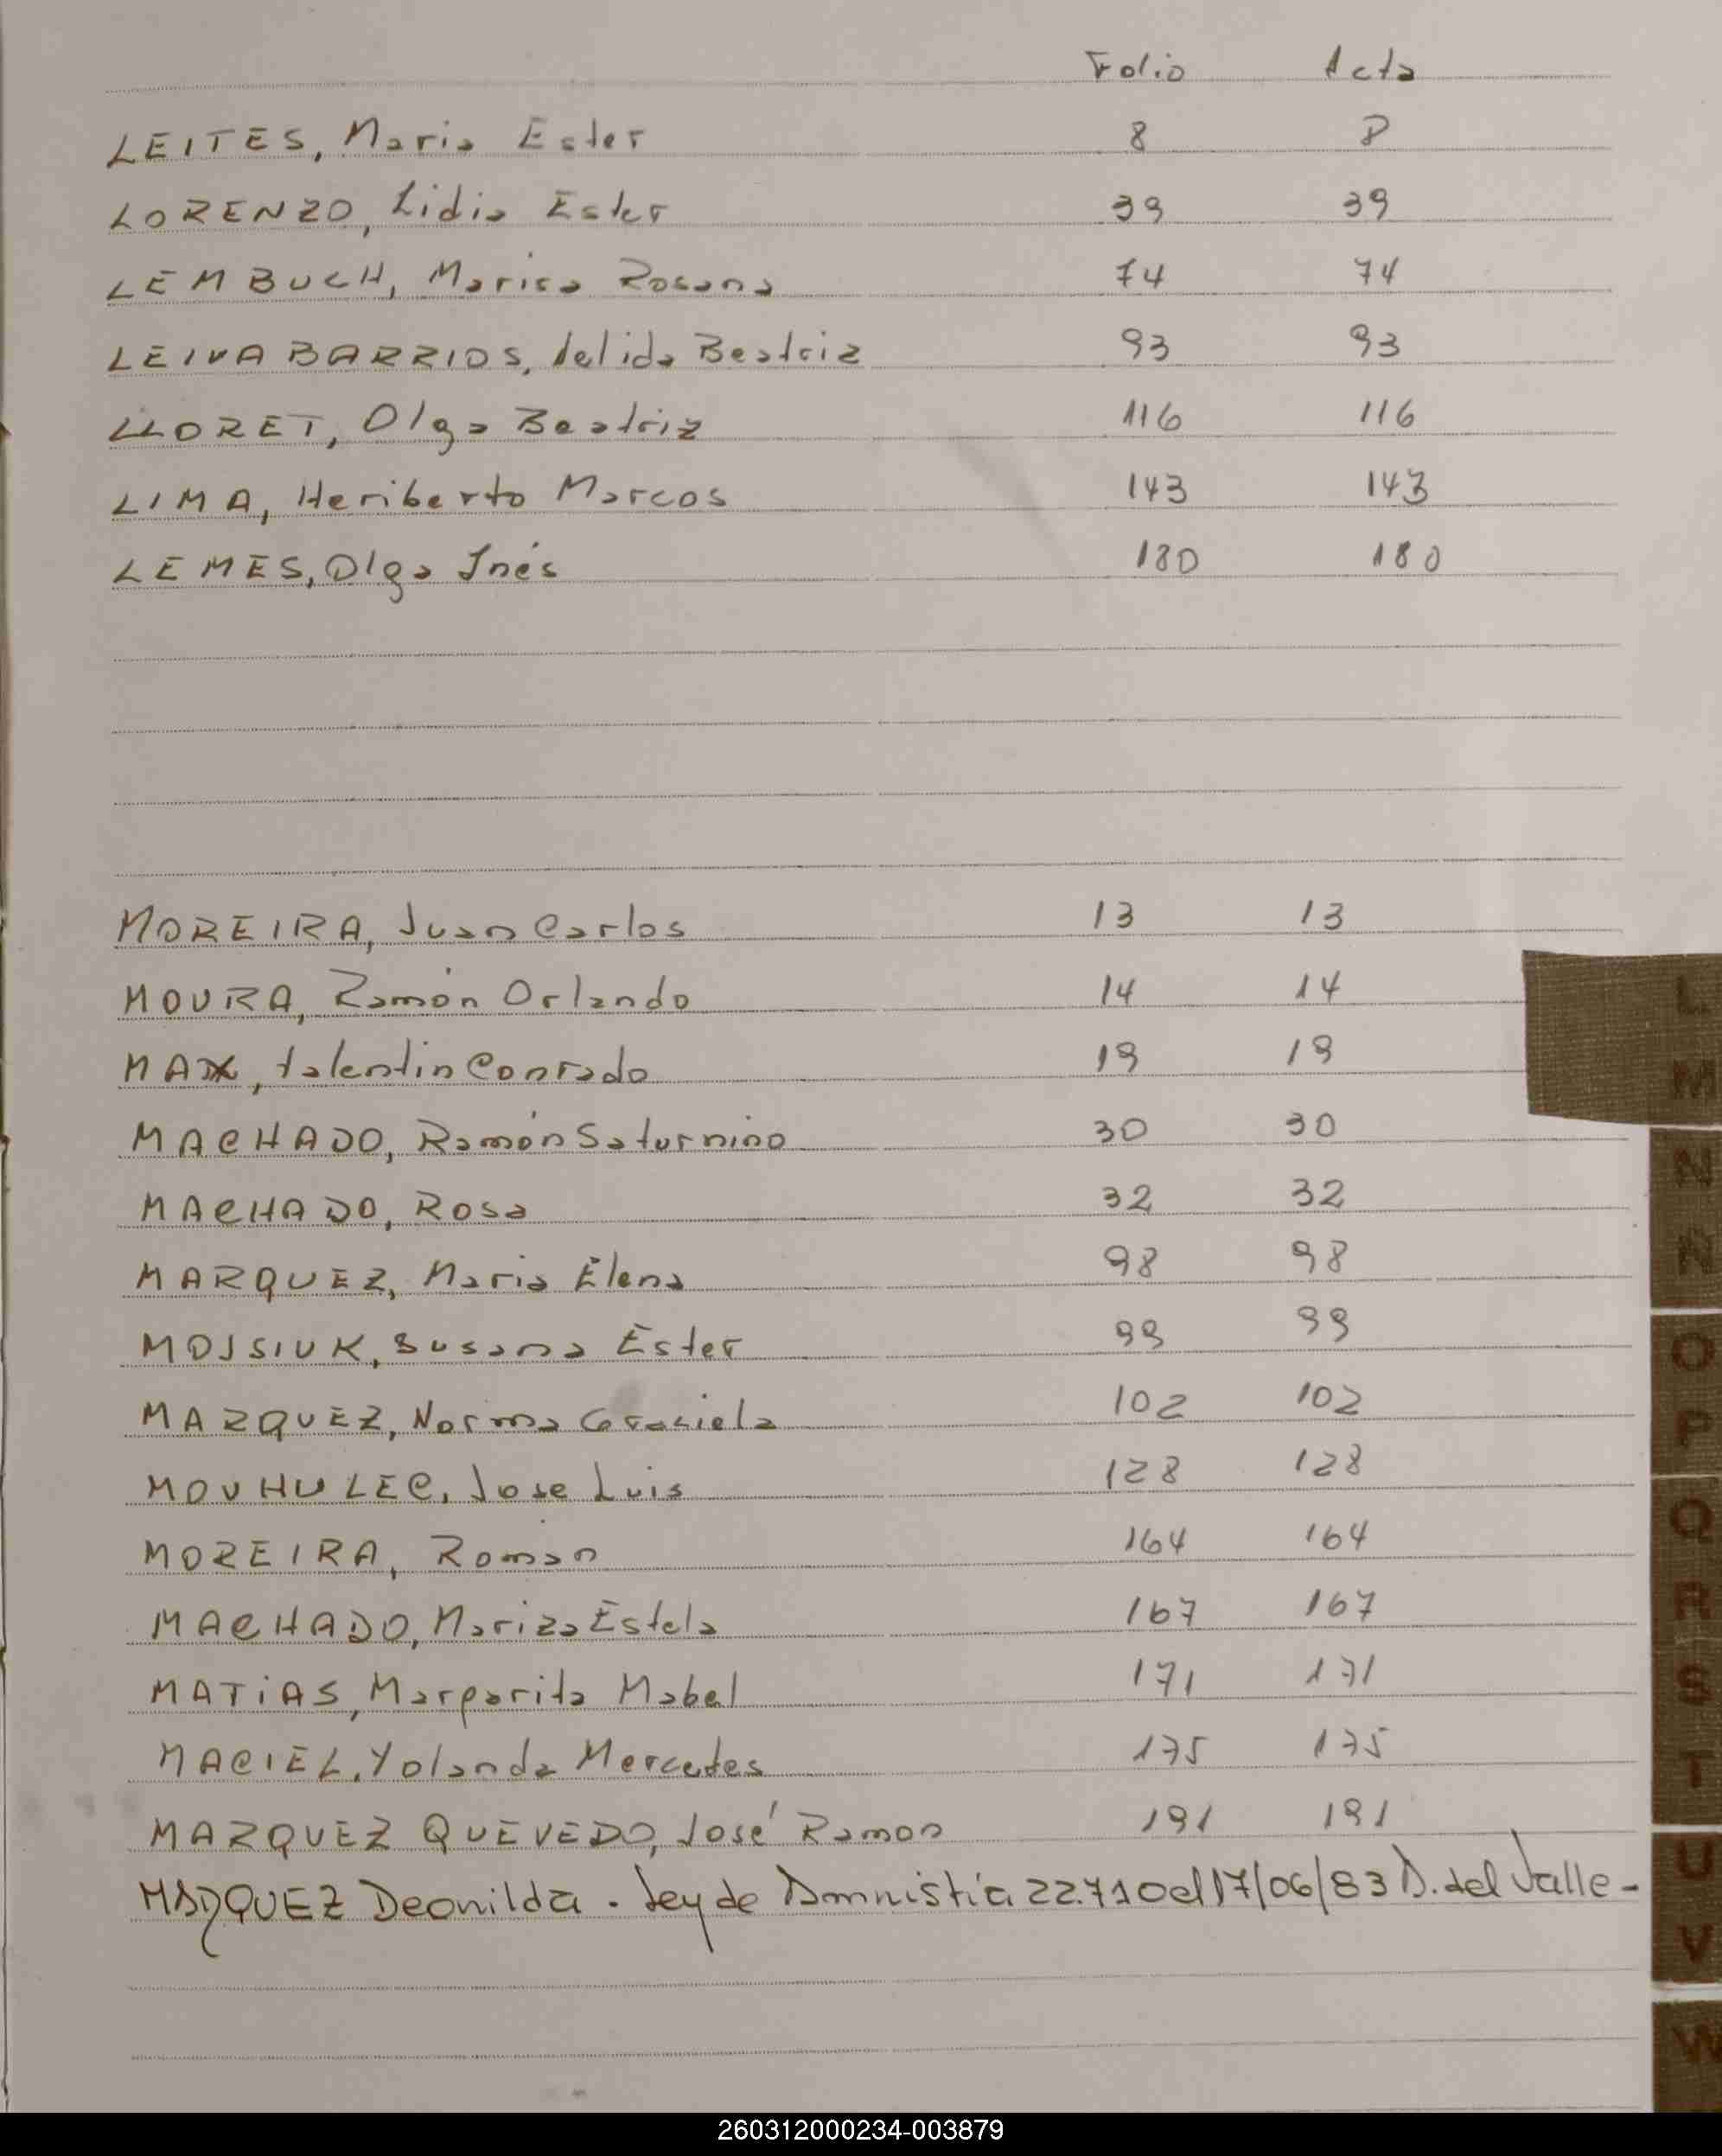 Folio Acta
LEITES, Maria Ester 8 8
LORENZO, Lidia Ester 39 39
LEMBUCH, Marisa Rosana 74 74
LEIVA BARRIOS, Delida Beatriz 93 93
LLORET, Olga Beatriz 116 116
LIMA, Heriberto Marcos 143 143
LEMES, Olga Inés 180 180
MOREIRA, Juan Carlos 13 13
MOURA, Ramón Orlando 14 14
MAX, Valentin Conrado 19 19
MACHADO, Ramón Saturnino 30 30
MACHADO, Rosa 32 32
MARQUEZ, Maria Elena 98 98
MOJSIUK, Susana Ester 99 99
MARQUEZ, Norma Graciela 102 102
MOVHULEC, Jose Luis 128 128
MOREIRA, Roman 164 164
MACHADO, Mariza Estela 167 167
MATIAS, Margarita Mabel 171 171
MACIEL, Yolanda Mercedes 175 175
MARQUEZ QUEVEDO, José Ramon 191 191
MARQUEZ Deonilda - Ley de Amnistía 22.710 del 17/06/83 A. del Valle -
L
M
N
Ñ
O
P
Q
R
S
T
U
V
W
260312000234-003879